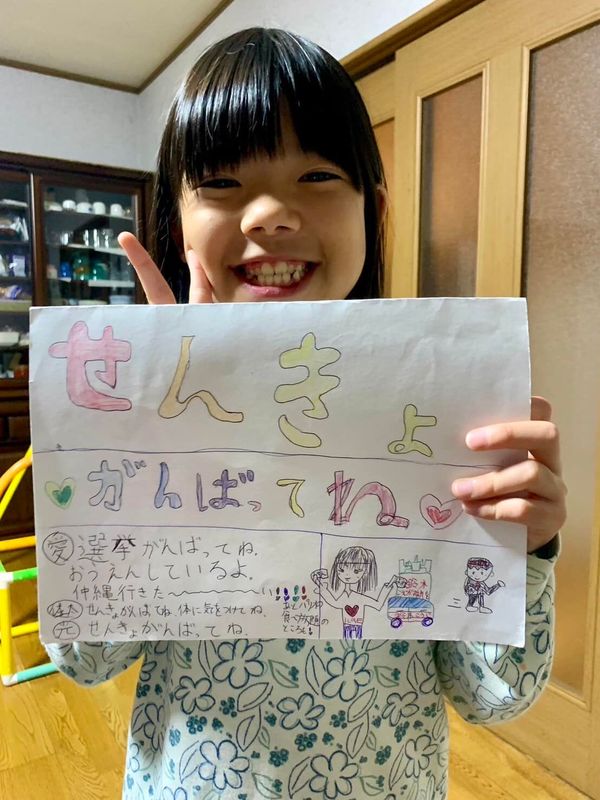 せんきょ
がんばってね
愛 選挙がんばってね.
おうえんしているよ.
沖縄行きた〜い!!!!!
せんきょがんばってね、体に気をつけてね.
せんきょがんばってね.
食べ放題の
ところも
鈴木
LOVE